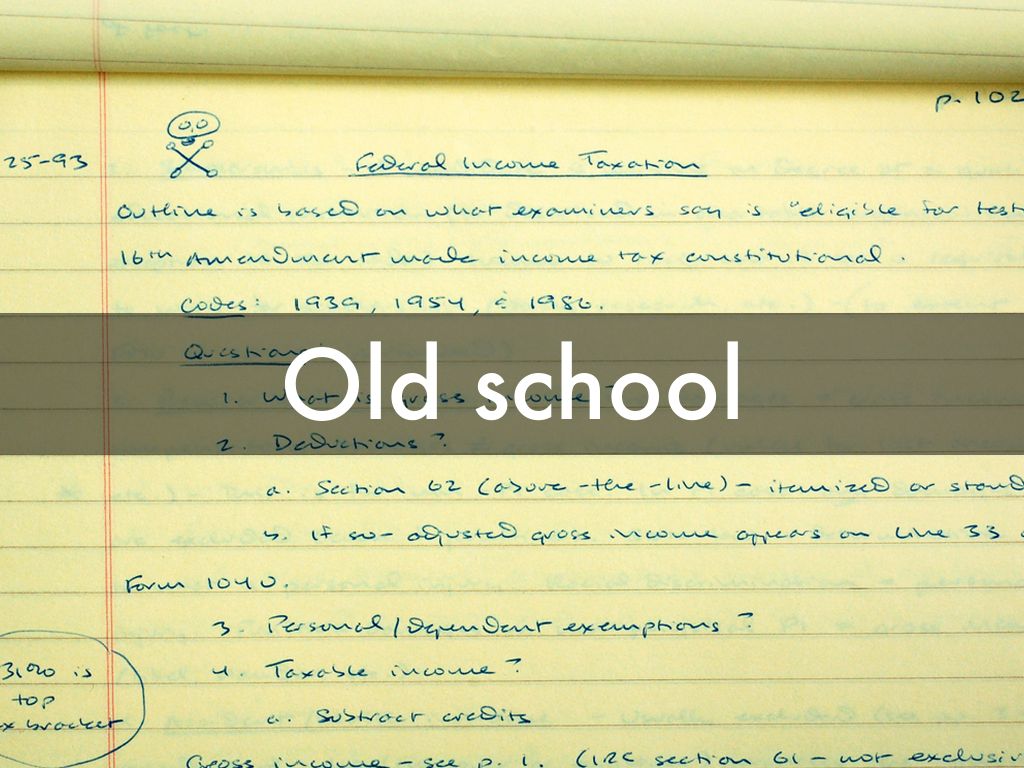 p. 102
25-93 Federal Income Taxation
Outline is based on what examiners say is "eligible for test
16th Amendment made income tax constitutional.
Codes: 1939, 1954, & 1986.
Question
Old school
1. What is gross income?
2. Deductions?
a. Section 62 (above-the-line) - itemized or stand
b. If so - adjusted gross income appears on Line 33
Form 1040.
3. Personal/dependent exemptions?
31% is
4. Taxable income?
top
x bracket
a. Subtract credits
Gross income - see p. 1. (IRC section 61 - not exclusiv